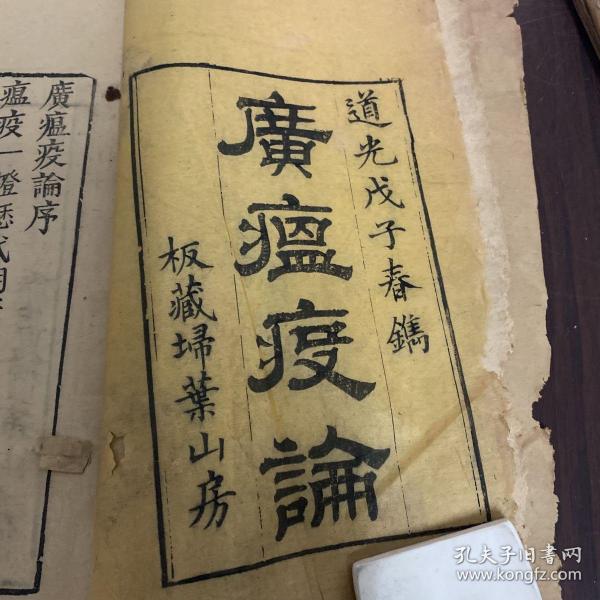 道光戊子春鐫
廣瘟疫論
板藏埽葉山房
廣瘟疫論序
瘟疫一證歷代明
孔夫子旧书网
www.kongfz.com